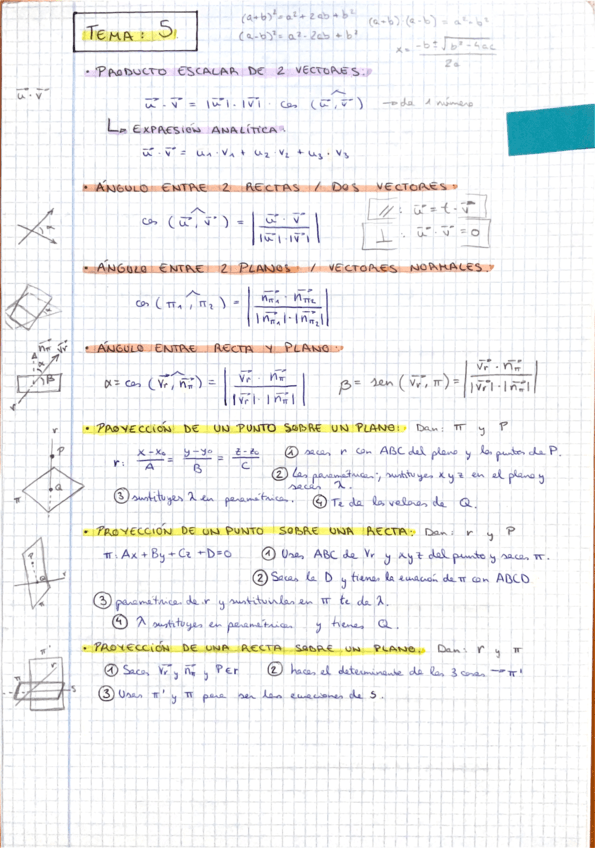 TEMA: 5
(a+b)² = a² + 2ab + b²
(a-b)² = a² - 2ab + b²
(a+b) (a-b) = a² - b²
x = -b ± √b² - 4ac / 2a
• PRODUCTO ESCALAR DE 2 VECTORES.
u⃗ · v⃗
u⃗ · v⃗ = |u⃗| · |v⃗| · cos (u⃗, v⃗) → da 1 número
↳ EXPRESIÓN ANALÍTICA:
u⃗ · v⃗ = u₁ · v₁ + u₂ · v₂ + u₃ · v₃
• ÁNGULO ENTRE 2 RECTAS / DOS VECTORES.
cos (u⃗, v⃗) = | u⃗ · v⃗ / |u⃗| · |v⃗| |
// : u⃗ = t · v⃗
⊥ : u⃗ · v⃗ = 0
α
• ÁNGULO ENTRE 2 PLANOS / VECTORES NORMALES.
cos (π₁, π₂) = | n⃗π₁ · n⃗π₂ / |n⃗π₁| · |n⃗π₂| |
α
• ÁNGULO ENTRE RECTA Y PLANO.
n⃗π v⃗r
α
β
α = cos (v⃗r, n⃗π) = | v⃗r · n⃗π / |v⃗r| · |n⃗π| | β = sen (v⃗r, π) = | v⃗r · n⃗π / |v⃗r| · |n⃗π| |
• PROYECCIÓN DE UN PUNTO SOBRE UN PLANO: Dan: π y P
r: x-x₀ / A = y-y₀ / B = z-z₀ / C ① sacas r con ABC del plano y los puntos de P.
② Las paramétricas, sustituyes x y z en el plano y
sacas λ.
③ sustituyes λ en paramétricas. ④ Te da los valores de Q.
r
P
Q
π
• PROYECCIÓN DE UN PUNTO SOBRE UNA RECTA: Dan: r y P
π: Ax + By + Cz + D = 0 ① Usas ABC de Vr y xyz del punto y sacas π.
② Sacas la D y tienes la ecuación de π con ABCD
③ paramétricas de r y sustituirlas en π te da λ.
④ λ sustituyes en paramétricas y tienes Q.
P
Q
r
• PROYECCIÓN DE UNA RECTA SOBRE UN PLANO. Dan: r y π
① Sacas v⃗r, n⃗π y P∈r ② haces el determinante de las 3 cosas → π'
③ Usas π' y π para ser las ecuaciones de s.
π'
r
π
s